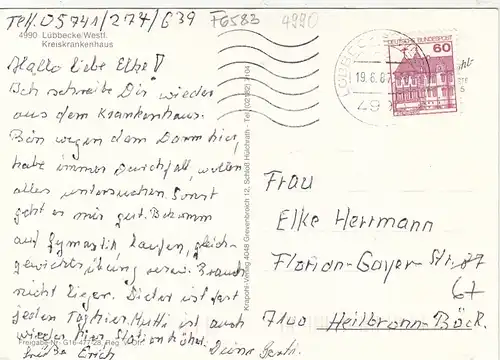 Tel. 05741/277/639
F6583
4990
4990 Lübbecke/Westf.
Kreiskrankenhaus
Hallo liebe Elke!
Ich schreibe Dir wieder
aus dem Krankenhaus.
Bin wegen dem Darm hier,
habe immer Durchfall, wollen
alles untersuchen. Sonst
geht es mir gut. Bekomm
auf Gymastik laufen, gleich-
gewichtsübung usw. Brauch
nicht liegen. Dieter ist fast
jeden Tag hier. Mutti ist auch
wieder hier Stationär.
Grüße Erich
Deine
Freigabe-Nr. G16-477-28, Reg. v. Dtf.
Krapohl-Verlag 4048 Grevenbroich 12, Schloß Hülchrath - Tel.
DEUTSCHE BUNDESPOST
60
LÜBBECKE
19.6.87
Frau
Elke Herrmann
Florian-Gayer-Str.
67
7100 Heilbronn-Böck.